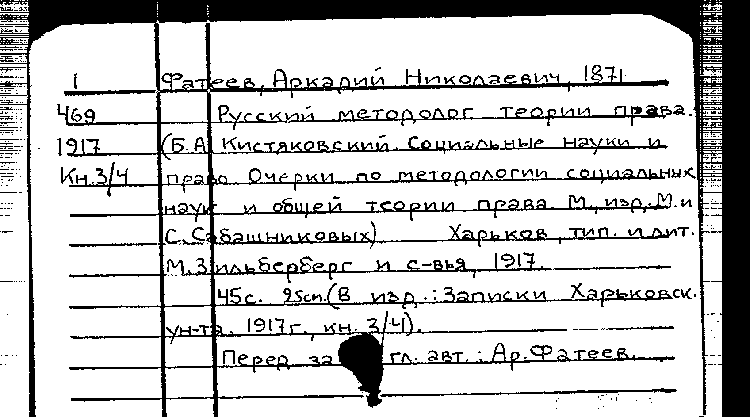 1 Фатеев, Аркадий Николаевич, 1871
469 Русский методолог теории права.
1917 (Б.А. Кистяковский. Социальные науки и
Кн.3/4 право. Очерки по методологии социальных
наук и общей теории права. М., изд. М. и
С. Сабашниковых) Харьков, тип. и лит.
М. Зильберберг и с-вья, 1917.
45с. 25см. (В изд.: Записки Харьковск.
ун-та. 1917г., кн. 3/4).
Перед загл. авт.: Ар. Фатеев.